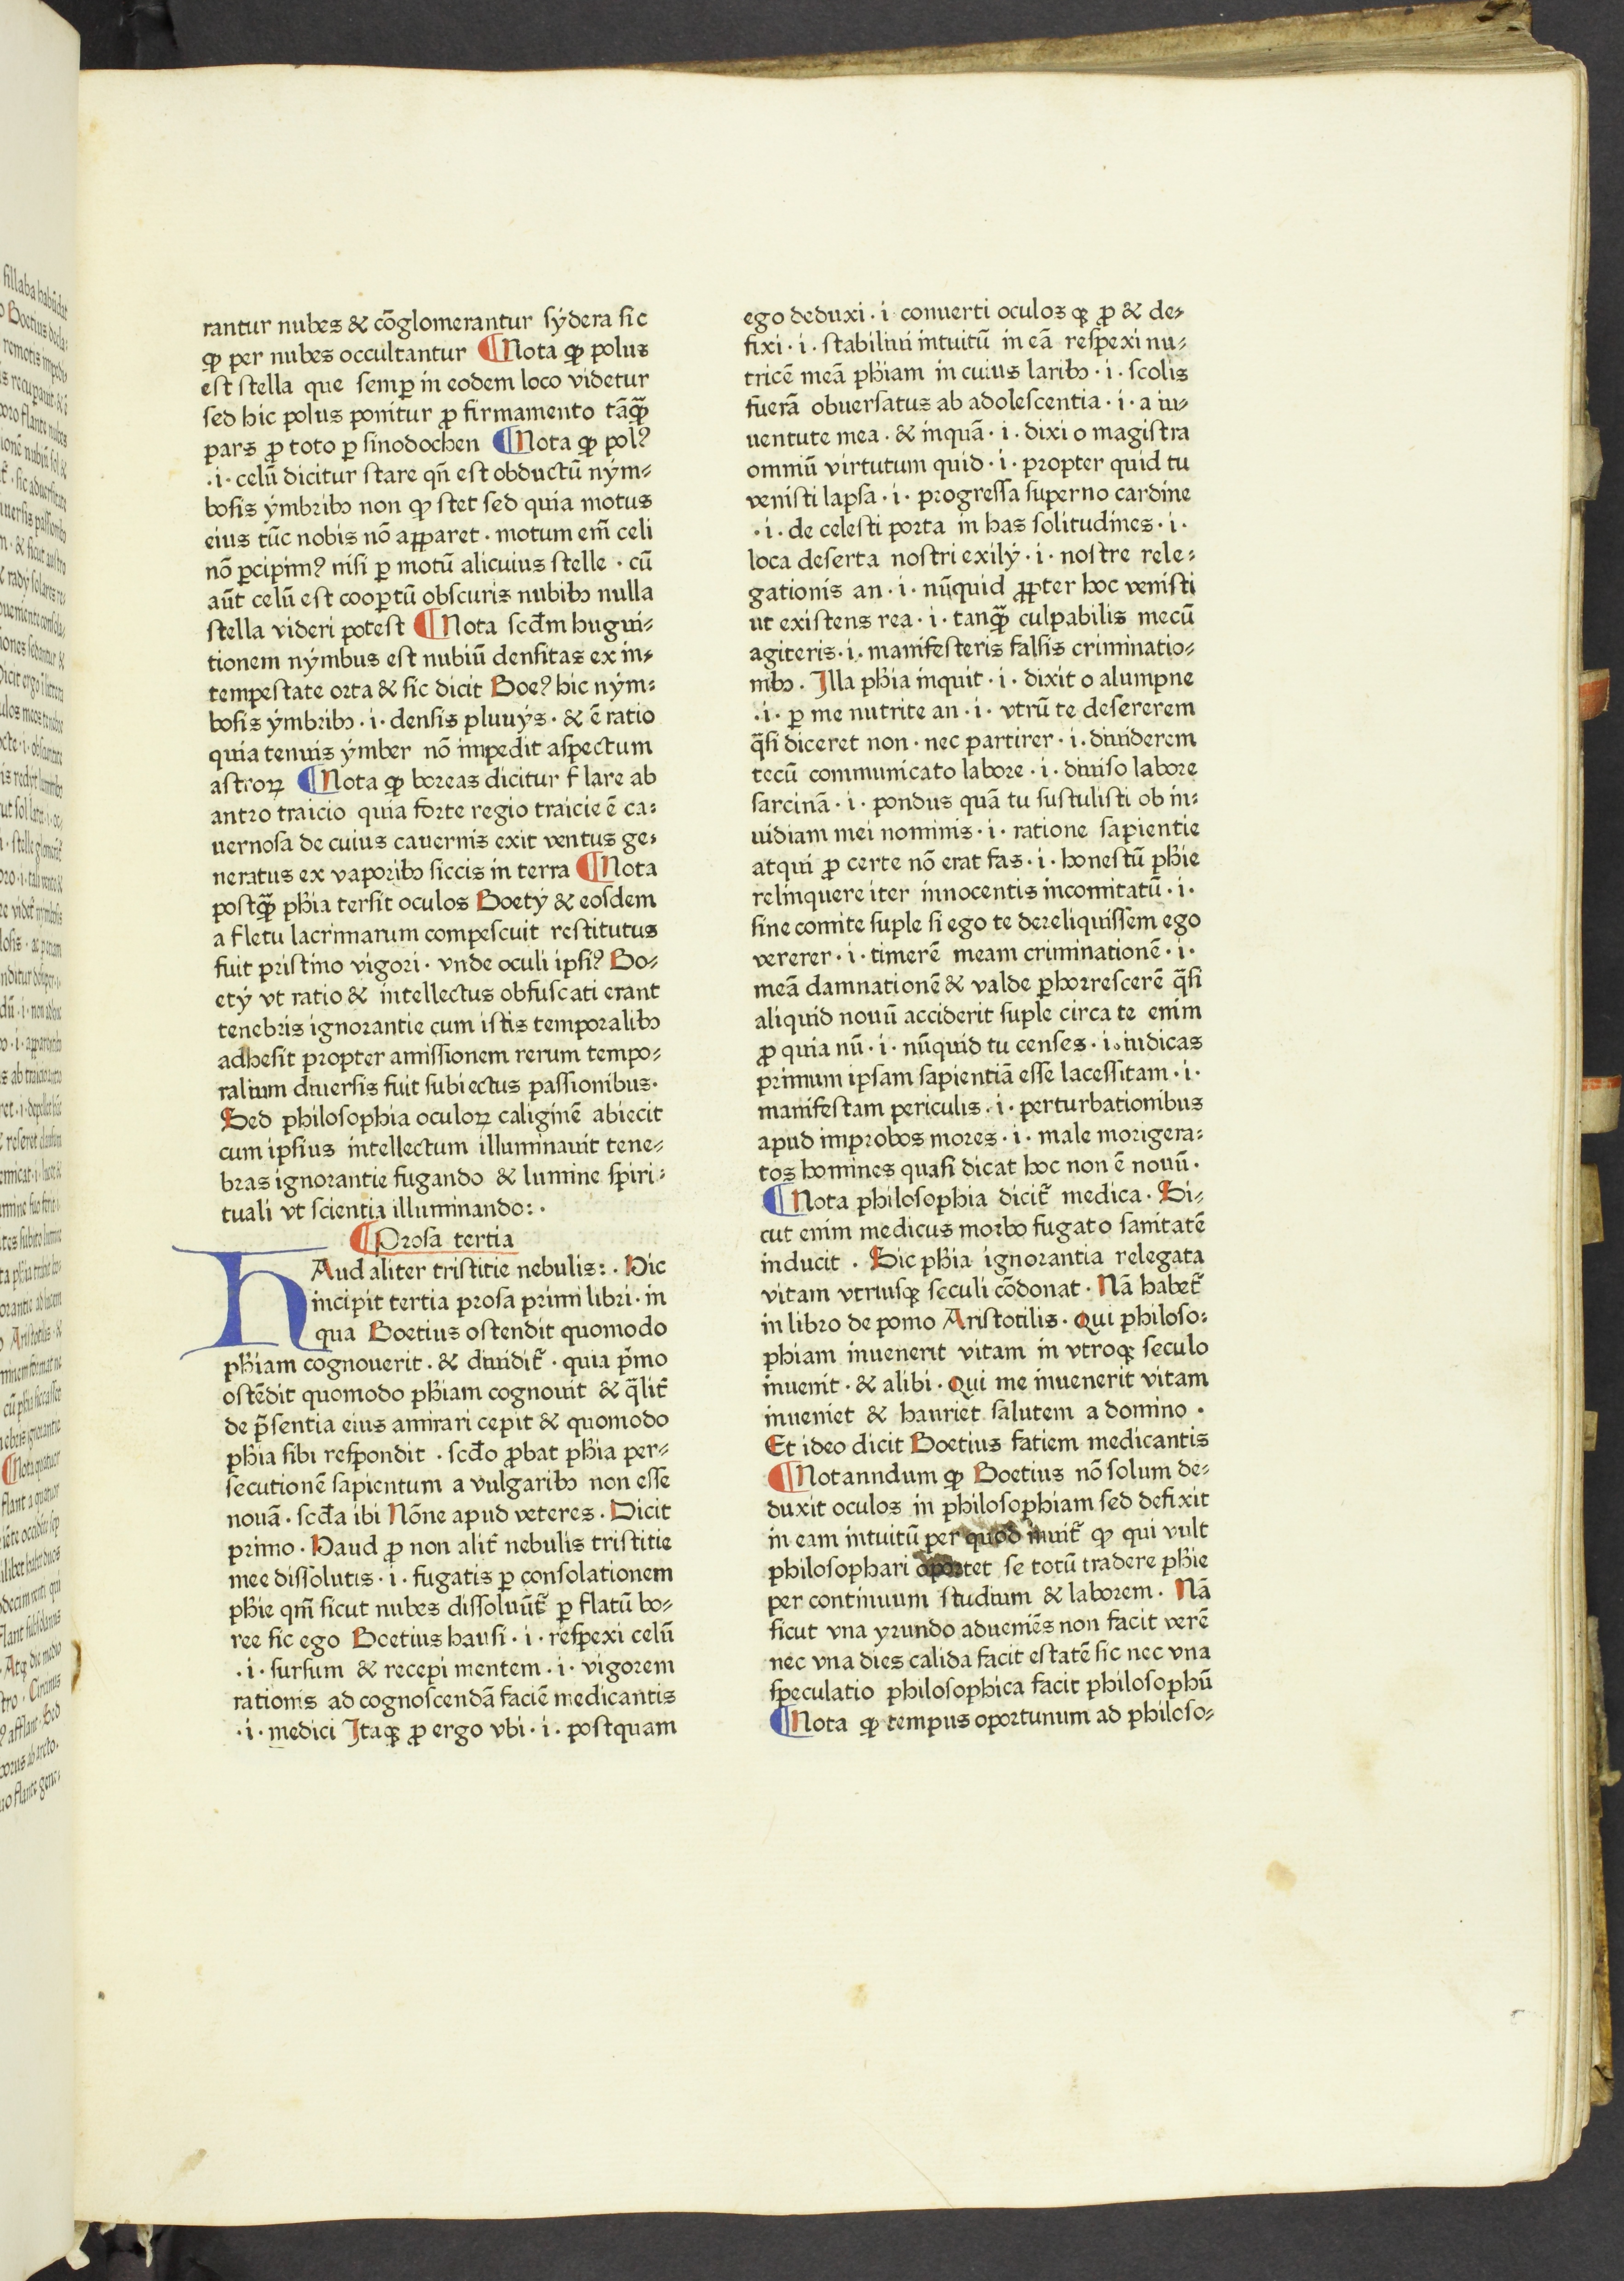 rantur nubes & cõglomerantur sẏdera sic
ꝙ per nubes occultantur ¶Nota ꝙ polus
est stella que semꝑ in eodem loco videtur
sed hic polus ponitur ꝓ firmamento tãꝙ̃
pars ꝓ toto ꝑ sinodochen ¶Nota ꝙ polꝰ
·i· celũ dicitur stare qñ est obductũ nẏm⸗
bosis ẏmbribꝫ non ꝙ stet sed quia motus
eius tũc nobis nõ apparet · motum em̃ celi
nõ ꝑcipimꝰ nisi ꝑ motũ alicuius stelle · cũ
aũt celũ est cooꝑtũ obscuris nubibꝫ nulla
stella videri potest ¶Nota scd̃m hugui⸗
tionem nẏmbus est nubiũ densitas ex in⸗
tempestate orta & sic dicit Boeꝰ hic nẏm⸗
bosis ẏmbribꝫ · i · densis pluuẏs · & ẽ ratio
quia tenuis ẏmber nõ impedit aspectum
astroꝝ ¶Nota ꝙ boreas dicitur flare ab
antro traicio quia forte regio traicie ẽ ca⸗
uernosa de cuius cauernis exit ventus ge⸗
neratus ex vaporibꝫ siccis in terra ¶Nota
postꝙ̃ phia tersit oculos Boetẏ & eosdem
a fletu lacrimarum compescuit restitutus
fuit pristino vigori · vnde oculi ipsiꝰ Bo⸗
etẏ vt ratio & intellectus obfuscati erant
tenebris ignorantie cum istis temporalibꝫ
adhesit propter amissionem rerum tempo⸗
ralium diuersis fuit subiectus passionibus·
Sed philosophia oculoꝝ caliginẽ abiecit
cum ipsius intellectum illuminauit tene⸗
bras ignorantie fugando & lumine spiri⸗
tuali vt scientia illuminando: ·
¶Prosa tertia
HAud aliter tristitie nebulis: · Hic
incipit tertia prosa primi libri · in
qua Boetius ostendit quomodo
phiam cognouerit · & diuidit̃ · quia p̃mo
ostẽdit quomodo phiam cognouit & q̃lit̃
de p̃sentia eius amirari cepit & quomodo
phia sibi respondit · scdo ꝓbat phia per⸗
secutionẽ sapientum a vulgaribꝫ non esse
nouã · scd̃a ibi Nõne apud veteres · Dicit
primo · Haud ꝓ non alit̃ nebulis tristitie
mee dissolutis · i · fugatis ꝑ consolationem
phie qm̃ sicut nubes dissoluũt̃ ꝑ flatũ bo⸗
ree sic ego Boetius hausi · i · respexi celũ
· i · sursum & recepi mentem · i · vigorem
rationis ad cognoscendã faciẽ medicantis
· i · medici Itaqꝫ ꝓ ergo vbi · i · postquam
ego deduxi · i conuerti oculos qꝫ ꝓ & de⸗
fixi · i · stabiliui intuitũ in eã respexi nu⸗
tricẽ meã phiam in cuius laribꝫ · i · scolis
fuerã obuersatus ab adolescentia · i · a iu⸗
uentute mea · & inquã · i · dixi o magistra
omniũ virtutum quid · i · propter quid tu
venisti lapsa · i · progressa superno cardine
· i · de celesti porta in has solitudines · i ·
loca deserta nostri exilẏ · i · nostre rele⸗
gationis an · i · nũquid ꝓpter hoc venisti
ut existens rea · i · tanꝙ̃ culpabilis mecũ
agiteris · i · manifesteris falsis criminatio⸗
nibꝫ · Illa phia inquit · i · dixit o alumpne
· i · ꝑ me nutrite an · i · vtrũ te desererem
q̃si diceret non · nec partirer · i · diuiderem
tecũ communicato labore · i · diuiso labore
sarcinã · i · pondus quã tu sustulisti ob in⸗
uidiam mei nominis · i · ratione sapientie
atqui ꝓ certe nõ erat fas · i · honestũ phie
relinquere iter innocentis incomitatũ · i ·
sine comite suple si ego te dereliquissem ego
vererer · i · timerẽ meam criminationẽ · i ·
meã damnationẽ & valde ꝑhorrescerẽ q̃si
aliquid nouũ acciderit suple circa te enim
ꝓ quia nũ · i · nũquid tu censes · i · iudicas
primum ipsam sapientiã esse lacessitam · i ·
manifestam periculis · i · perturbationibus
apud improbos mores · i · male morigera⸗
tos homines quasi dicat hoc non ẽ nouũ ·
¶Nota philosophia dicit̃ medica · Si⸗
cut enim medicus morbo fugato sanitatẽ
inducit · Sic phia ignorantia relegata
vitam vtriusqꝫ seculi cõdonat · Nã habet̃
in libro de pomo Aristotilis · Qui philoso⸗
phiam inuenerit vitam in vtroqꝫ seculo
inuenit · & alibi · Qui me inuenerit vitam
inueniet & hauriet salutem a domino ·
Et ideo dicit Boetius fatiem medicantis
¶Notanndum ꝙ Boetius nõ solum de⸗
duxit oculos in philosophiam sed defixit
in eam intuitũ per quod inuit̃ ꝙ qui vult
philosophari oportet se totũ tradere phie
per continuum studium & laborem · Nã
sicut vna yrundo adueniẽs non facit verẽ
nec vna dies calida facit estatẽ sic nec vna
speculatio philosophica facit philosophũ
¶Nota ꝙ tempus oportunum ad philoso⸗